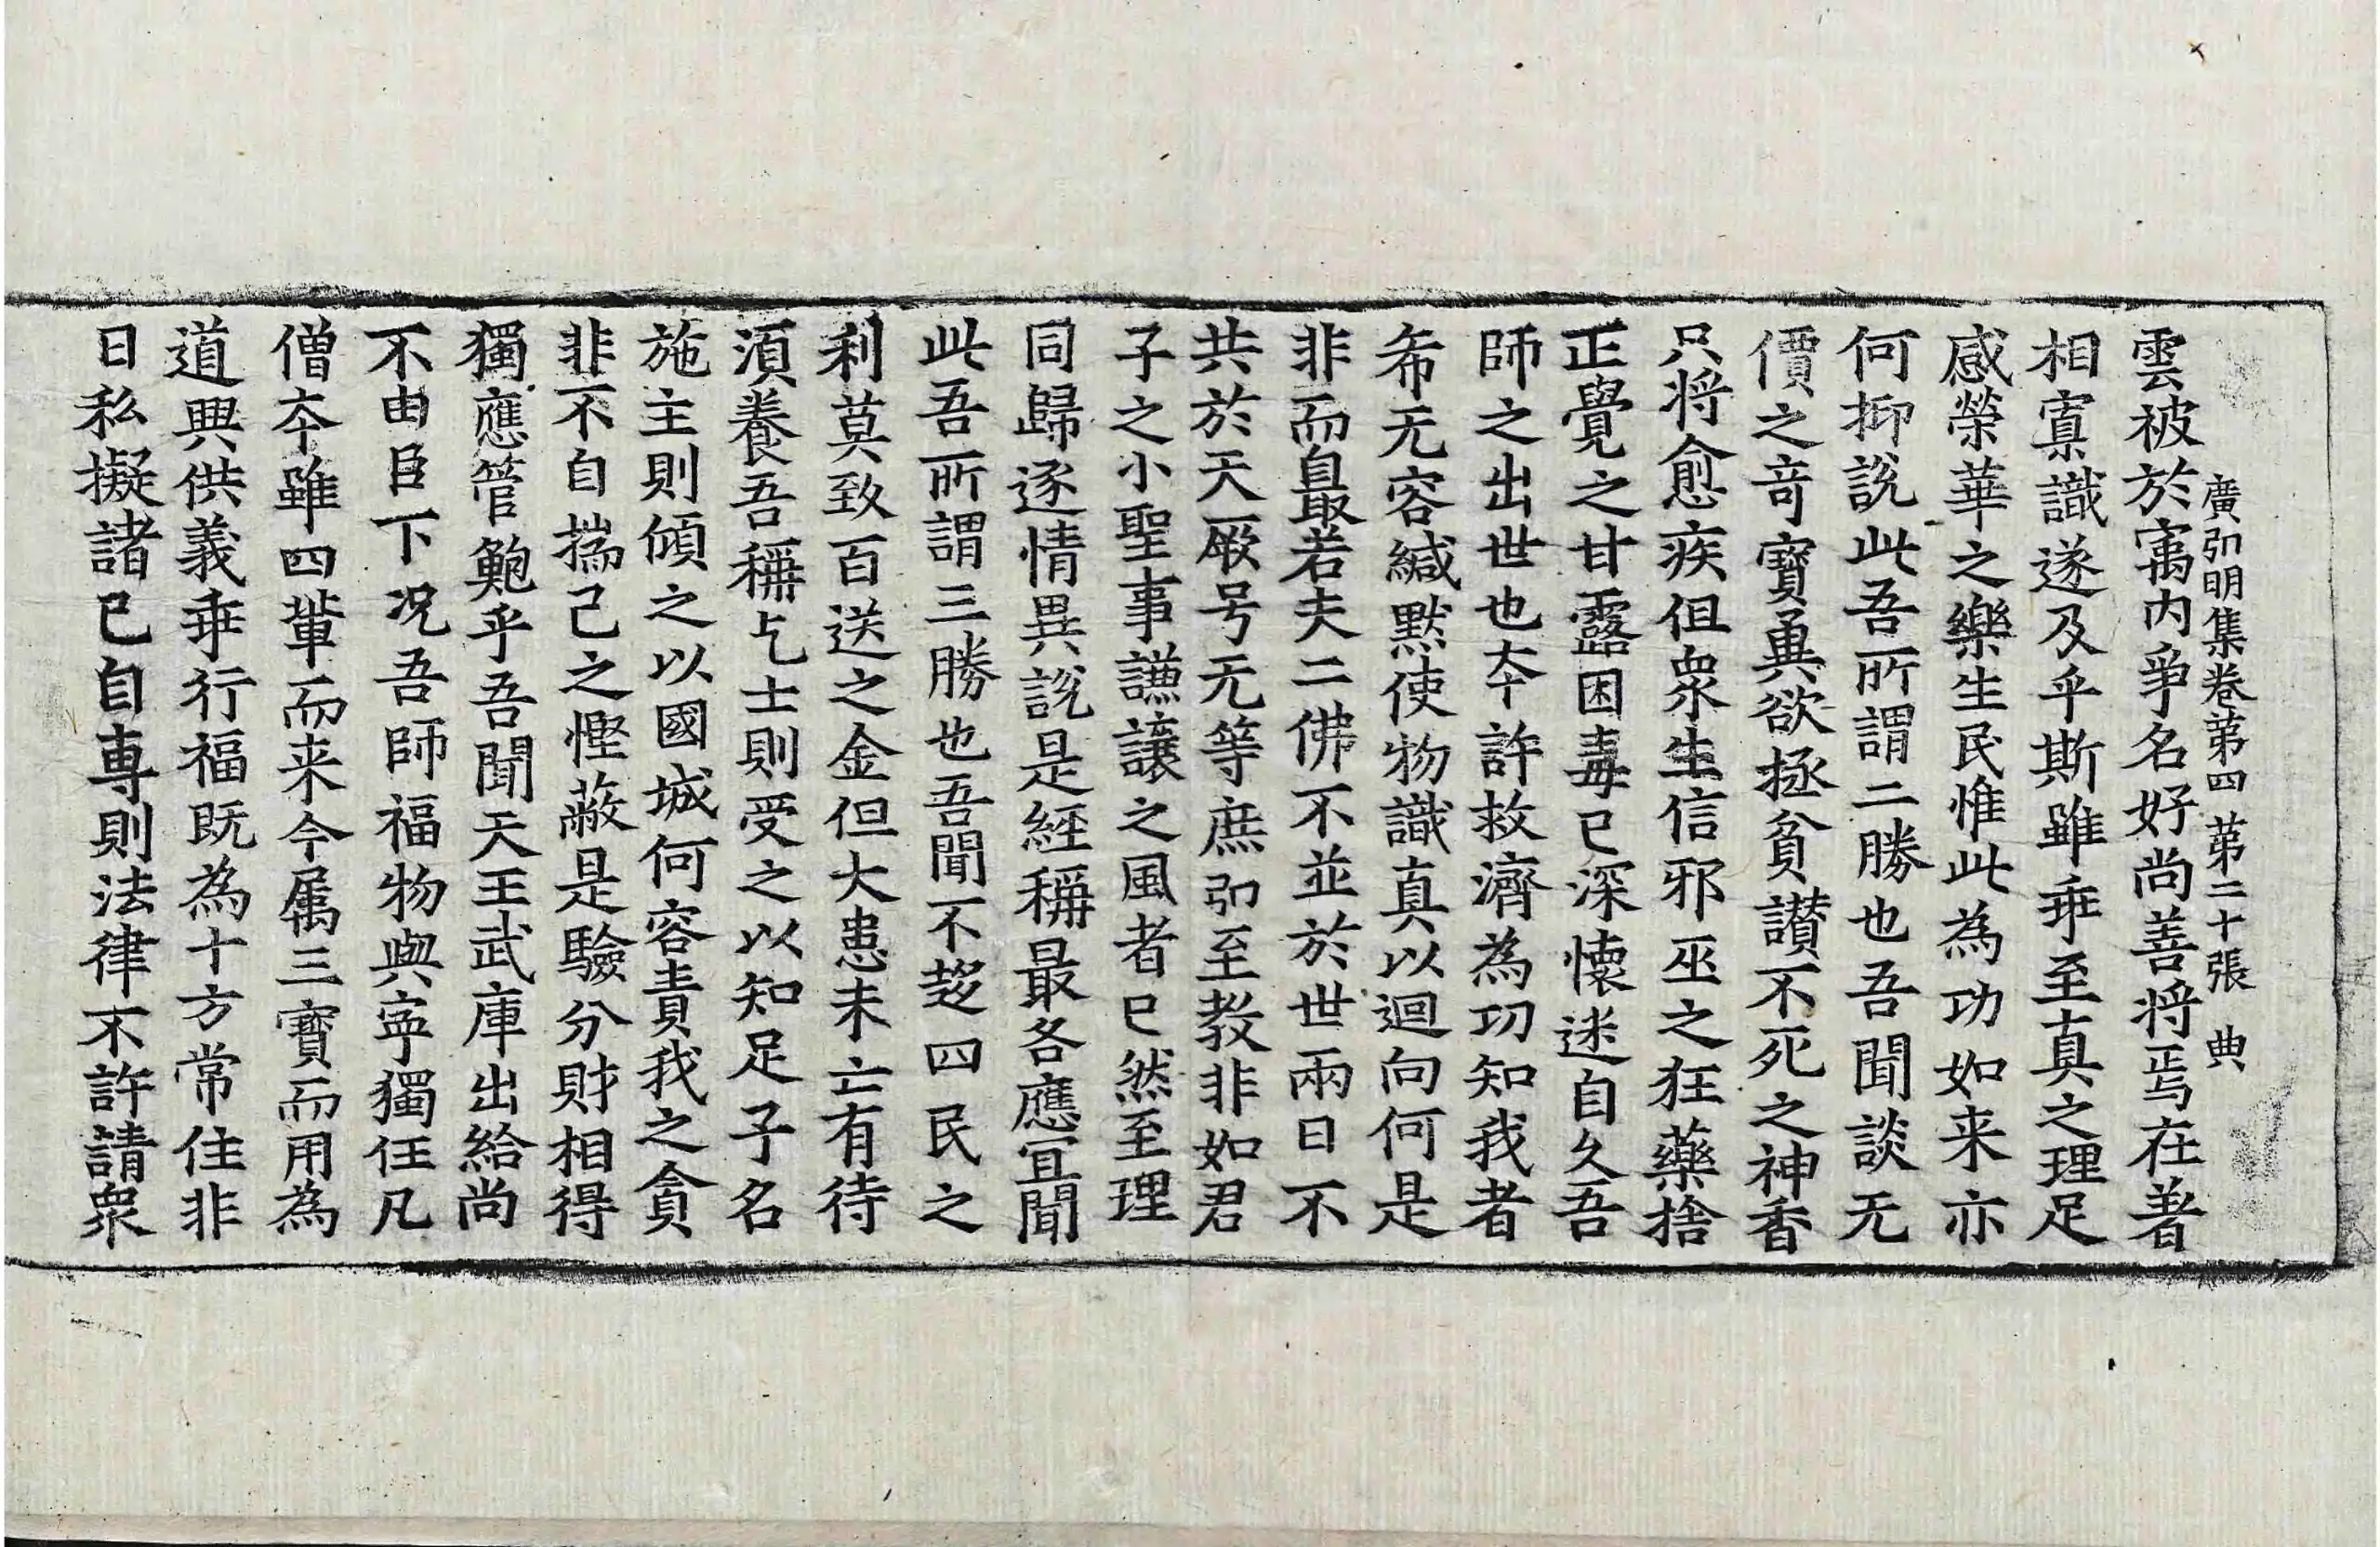 廣弘明集卷第四 第二十張 典
雲被於寓內爭名好尚善將焉在著
相寘識遂及乎斯雖乖至真之理足
感榮華之樂生民惟此為功如来亦
何抑說此吾所謂二勝也吾聞談无
價之竒寶勇欲拯貧讃不死之神香
只将愈疾但衆生信邪巫之狂藥捨
正覺之甘露困毒已深懷迷自久吾
師之出世也夲許救濟為功知我者
希无容緘默使物識真以迴向何是
非而最若夫二佛不並於世兩日不
共於天厥号无等庶弘至教非如君
子之小聖事謙讓之風者已然至理
同歸逐情異說是經稱最各應宜聞
此吾所謂三勝也吾聞不趍四民之
利莫致百送之金但大患未亡有待
湏養吾稱乞士則受之以知足子名
施主則傾之以國城何容責我之貪
非不自揣己之慳蔽是驗分財相得
獨應管鮑乎吾聞天王武庫出給尚
不由臣下况吾師福物與寜獨任凡
僧夲雖四輩而来今属三寶而用為
道興供義乖行福既為十方常住非
日私擬諸已自専則法律不許請衆